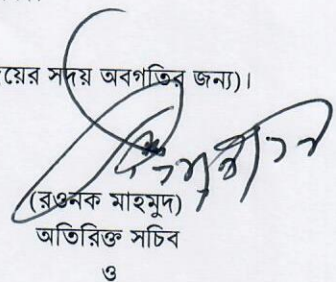 য়ের সদয় অবগতির জন্য)।
(রওনক মাহমুদ)
অতিরিক্ত সচিব
ও